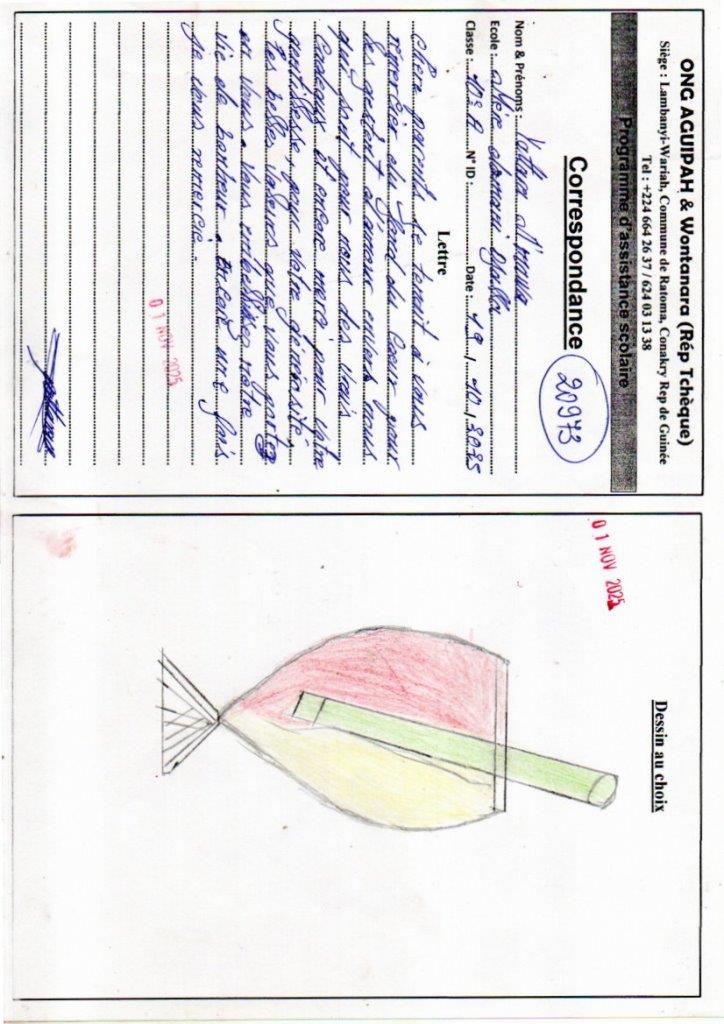 ONG AGUIPAH & Wontanara (Rép Tchèque)
Siège : Lambanyi-Wariah, Commune de Ratoma, Conakry Rep de Guinée
Tel : +224 664 26 37 / 624 03 13 38
Programme d'assistance scolaire
Correspondance
20973
Nom & Prénoms :
Ecole :
Classe : 10e A N° ID : Date : 19 / 10 / 2025
Lettre
Chère parents je tenait à vous
du fond du Coeur pour
d'amour envers nous
qui sont pour nous des vrais
Cadeaux Et encore merci pour votre
gentillesse, pour votre générosité,
les belles valeurs que vous partez
en vous. Vous embellissez nôtre
vie de bonheur. Encore une fois
je vous remercie.
01 NOV 2025
01 NOV 2025
Dessin au choix